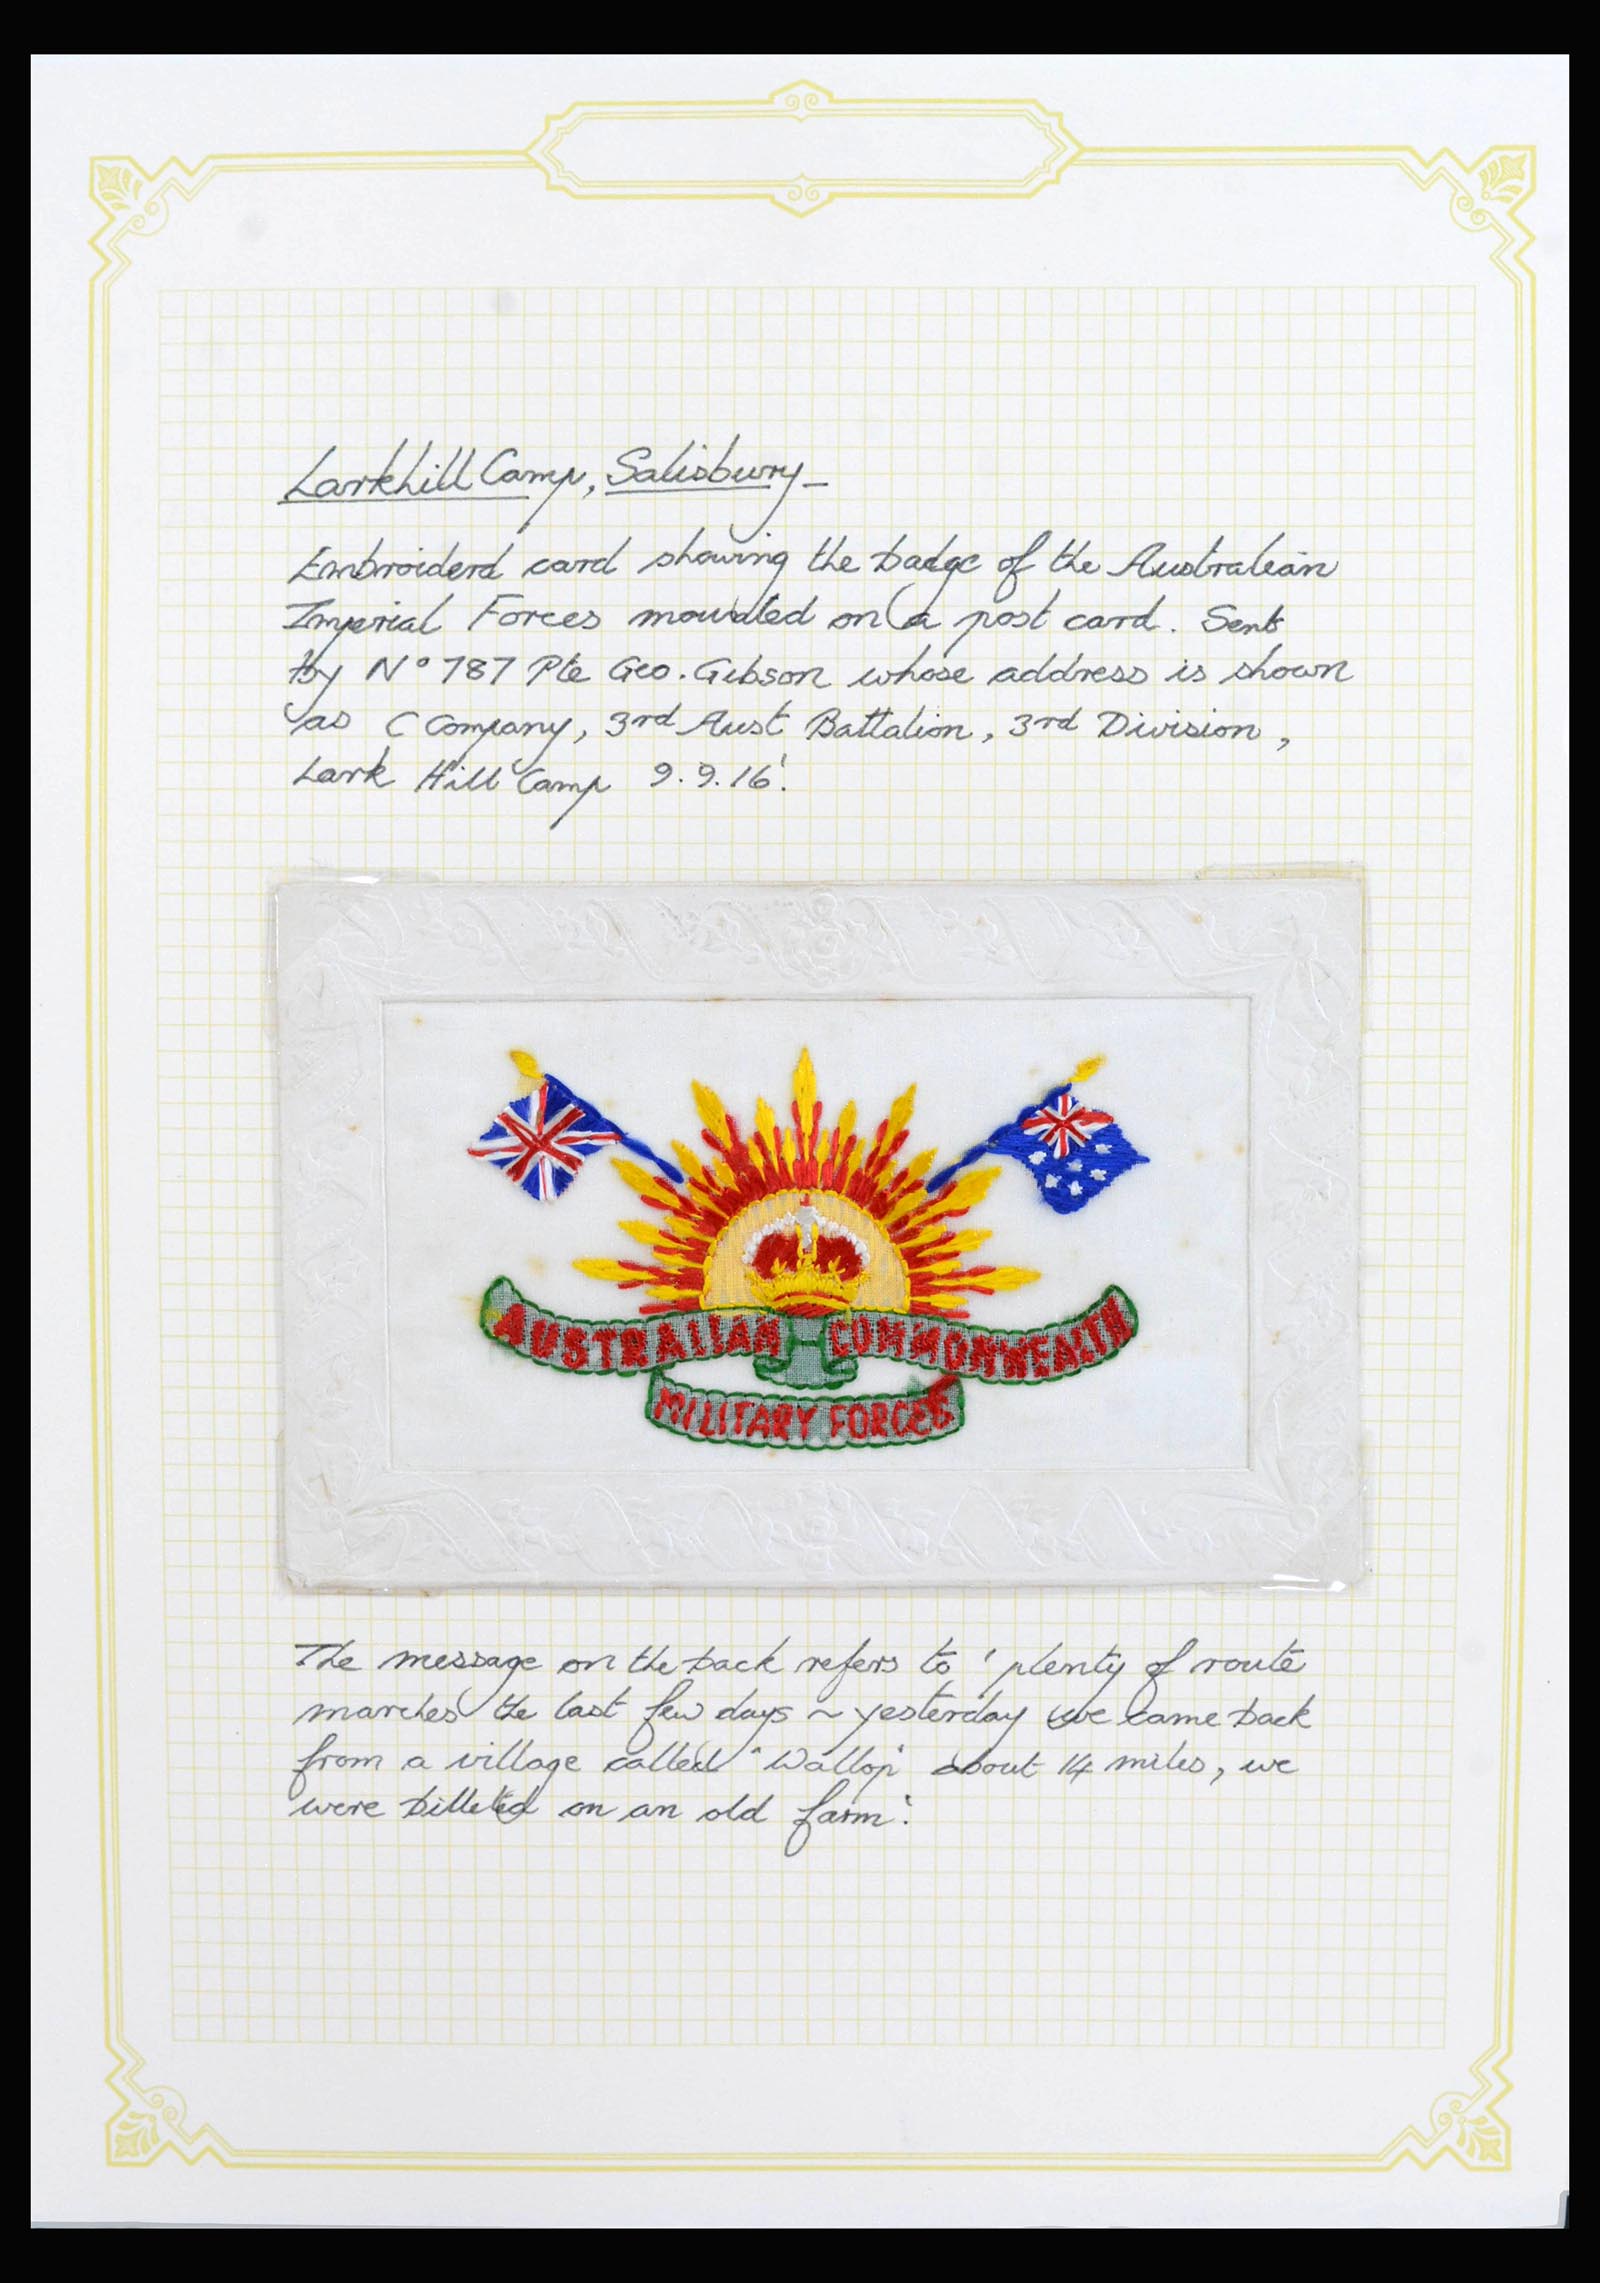 Larkhill Camp, Salisbury_
Embroiderd card showing the badge of the Australian
Imperial Forces mounted on a post card. Sent
by Nº 787 Pte Geo. Gibson whose address is shown
as C Company, 3rd Aust Battalion, 3rd Division,
Lark Hill Camp 9.9.16'.
AUSTRALIAN COMMONWEALTH
MILITARY FORCES
The message on the back refers to 'plenty of route
marches the last few days ~ yesterday we came back
from a village called "Wallop" about 14 miles, we
were billeted on an old farm'.